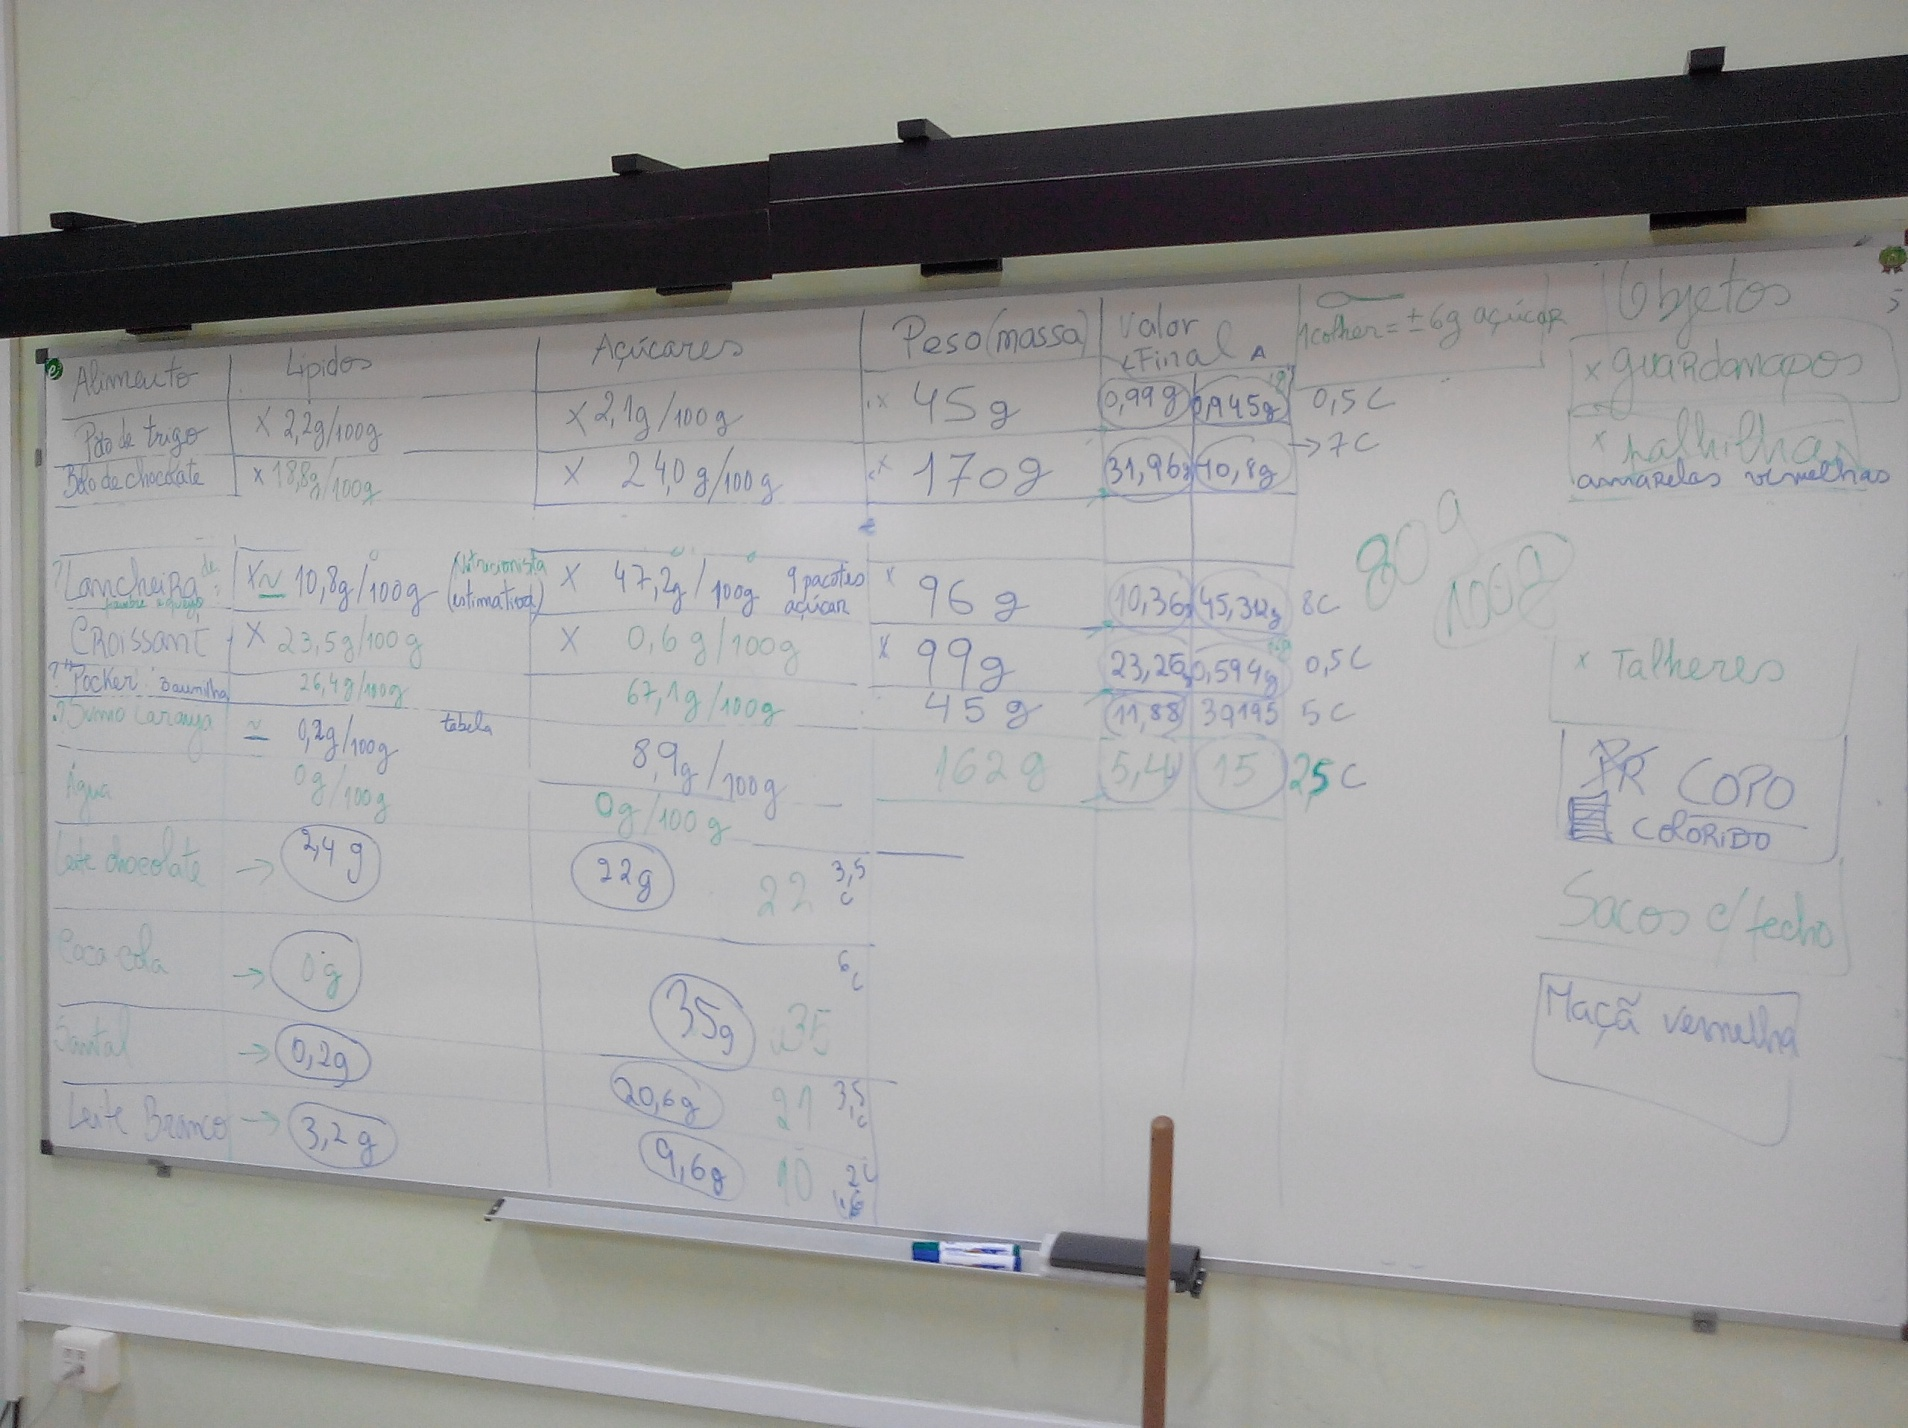 Alimento Lípidos Açúcares Peso (massa) Valor Final A 1 colher = ± 6g açúcar
Pão de trigo x 2,2g/100g x 2,1g/100g x 45g 0,99g 0,945g 0,5C
Bolo de chocolate x 18,8g/100g x 24,0g/100g x 170g 31,96g 40,8g → 7C
? Lancheira de: x ≃ 10,8g/100g (Nutricionista estimativa) x 47,2g/100g 9 pacotes açúcar x 96g 10,36g 45,312g 8C
fiambre e queijo
CROISSANT x 23,5g/100g x 0,6g/100g x 99g 23,26g 0,594g 0,5C
? "Pocker" Baunilha 26,4g/100g 67,1g/100g 45g 11,88 30,195 5C
? Sumo Laranja ≃ 0,2g/100g tabela 8,9g/100g 162g 5,4 15 2,5C
Água 0g/100g 0g/100g
Leite chocolate → 2,4g 22g 22 3,5C
Coca-cola → 0g 35g 35 6C
Santal → 0,2g 20,6g 21 3,5C
Leite Branco → 3,2g 9,6g 10 2C
80g
100g
Objetos
x guardanapos
x palhilhas
amarelas vermelhas
x Talheres
COPO
COLORIDO
Sacos c/ fecho
Maçã vermelha